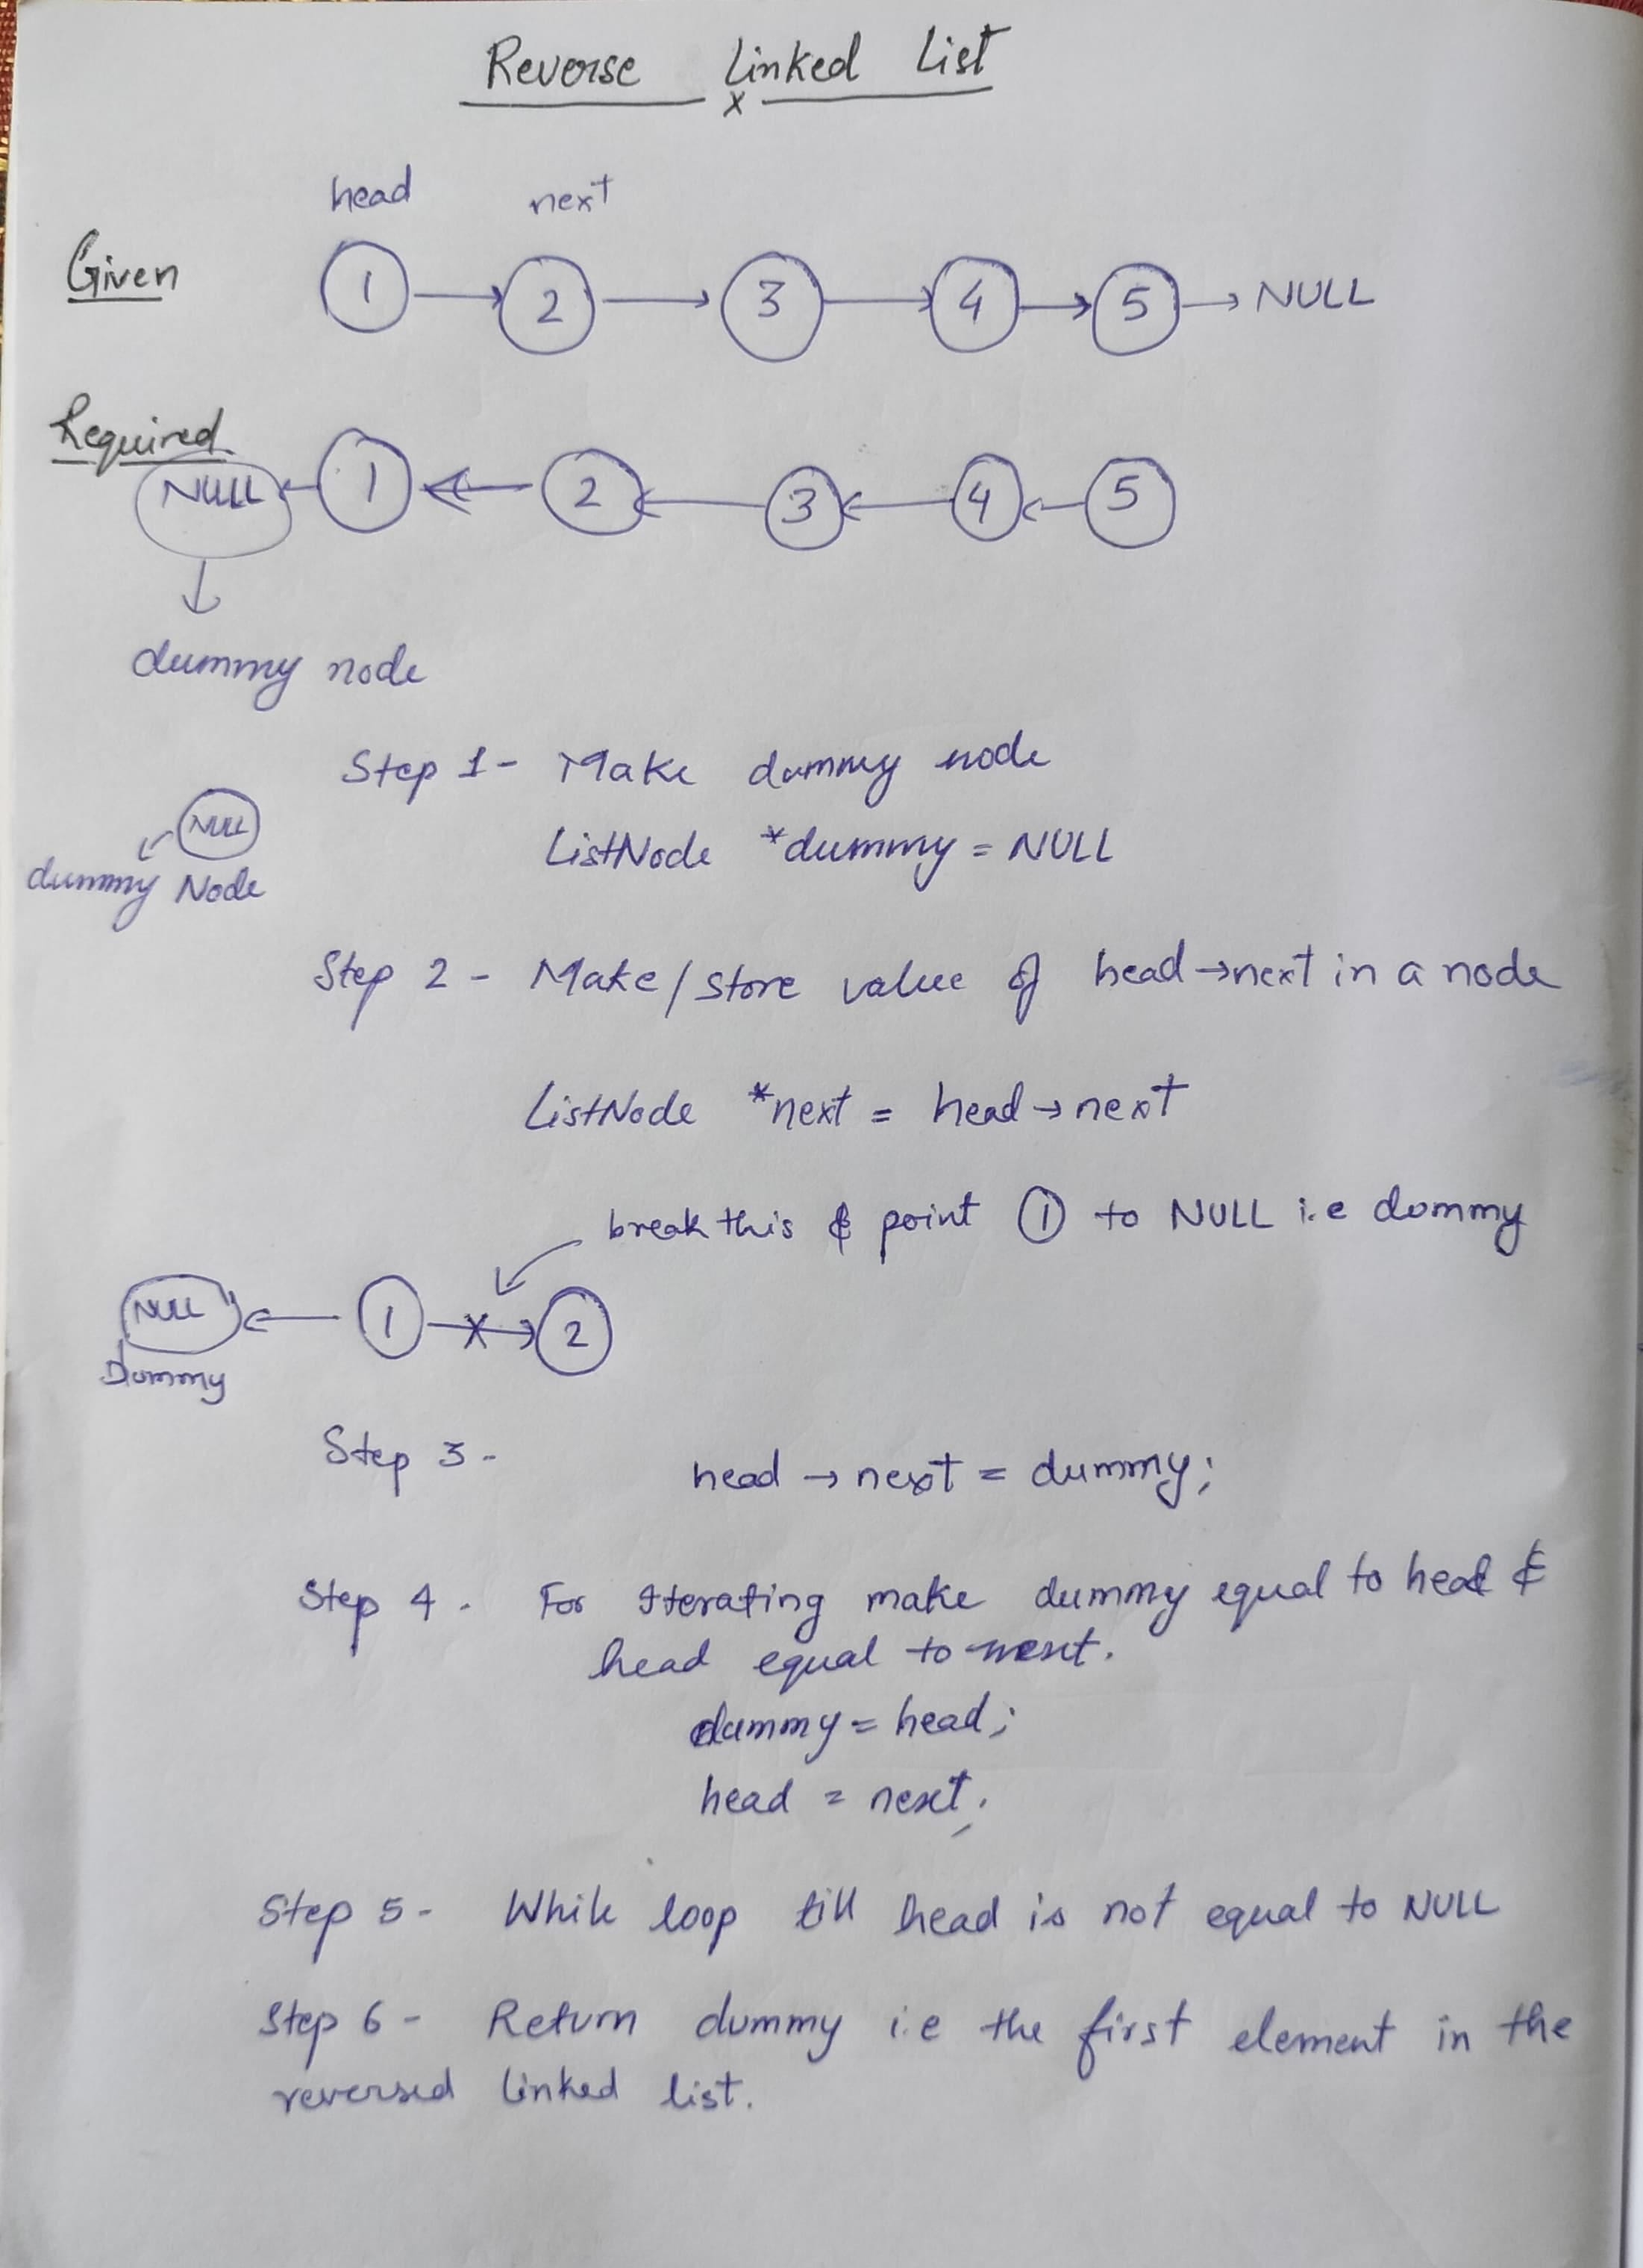 Reverse Linked List
x
head next
Given 1 → 2 → 3 → 4 → 5 → NULL
Required
NULL ← 1 ← 2 ← 3 ← 4 ← 5
dummy node
Step 1 - Make dummy node
NULL
ListNode *dummy = NULL
dummy Node
Step 2 - Make / store value of head → next in a node
ListNode *next = head → next
break this & point 1 to NULL i.e dummy
NULL ← 1 → 2
Dummy
Step 3 -
head → next = dummy;
Step 4 - For Iterating make dummy equal to head &
head equal to next.
dummy = head;
head = next;
Step 5 - While loop till head is not equal to NULL
Step 6 - Return dummy i.e the first element in the
reversed linked list.